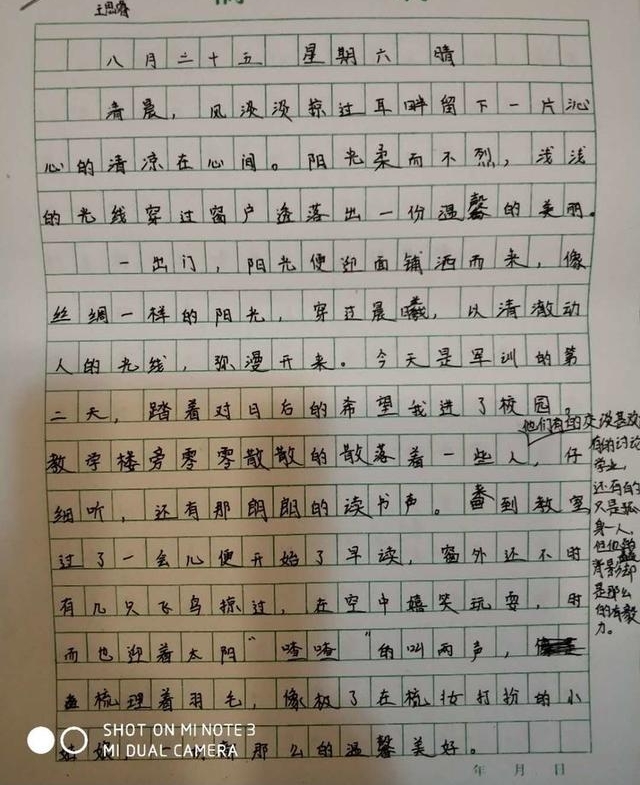 王思睿
八月二十五 星期六 晴
清晨，风淡淡掠过耳畔留下一片沁
心的清凉在心间。阳光柔而不烈，浅浅
的光线穿过窗户透落出一份温馨的美丽。
一出门，阳光便迎面铺洒而来，像
丝绸一样的阳光，穿过晨曦，以清澈动
人的光线，弥漫开来。今天是军训的第
二天，踏着对日后的希望我进了校园，
教学楼旁零零散散的散落着一些人，仔
细听，还有那朗朗的读书声。来到教室
过了一会儿便开始了早读，窗外还不时
有几只飞鸟掠过，在空中嬉笑玩耍，时
而也迎着太阳“喳喳”的叫两声，
梳理着羽毛，像极了在梳妆打扮的小
姑娘，那么的温馨美好。
他们有的在谈甚欢
有的讨论
学业，
还有的
只是孤
身一人，
他们的
背影却
是那么
的有毅
力。
年 月 日
SHOT ON MI NOTE 3
MI DUAL CAMERA